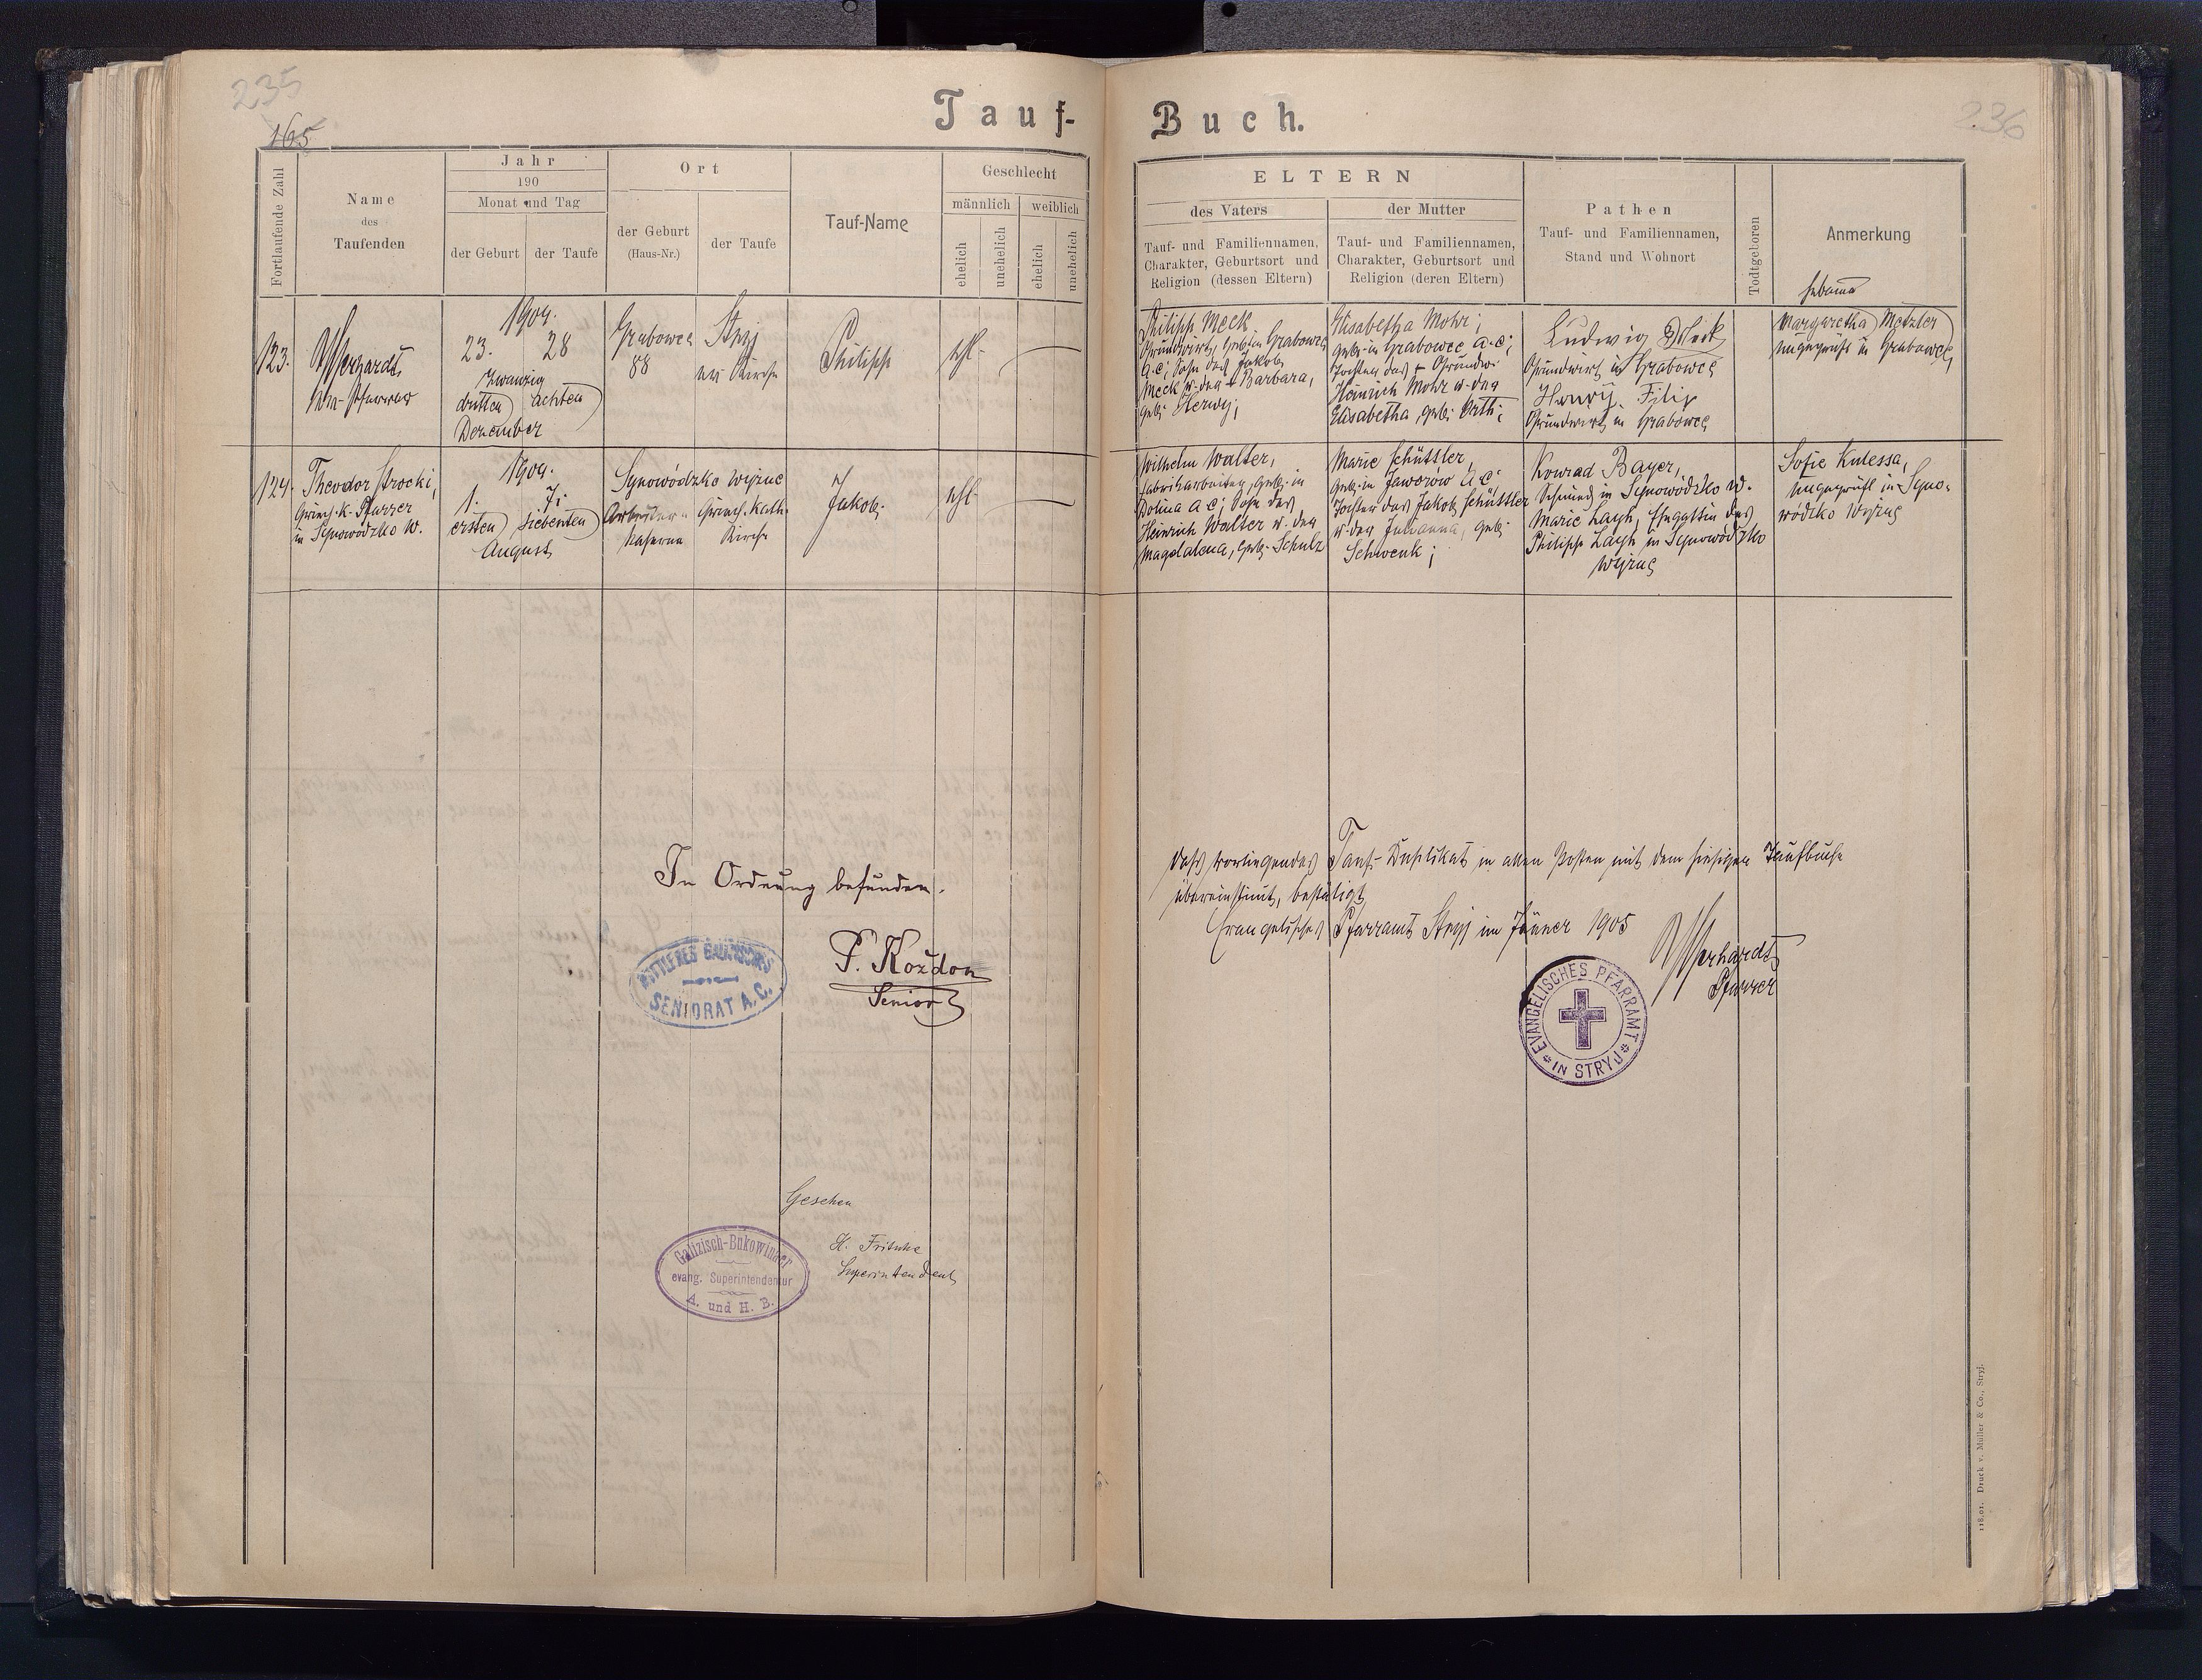 235
165
Tauf-
Fortlaufende Zahl
Name
des
Taufenden
Jahr
190
Monat und Tag
der Geburt
der Taufe
Ort
der Geburt
(Haus-Nr.)
der Taufe
Tauf-Name
Geschlecht
männlich
weiblich
ehelich
unehelich
ehelich
unehelich
123.
Pfarrer
1904.
23. 28
zwanzig
dritten achten
Dezember
Grabowce
88
Stryj
ev. Kirche
Philipp
ehl.
124.
Theodor Strocki,
Griech. K. Pfarrer
in Synowódzko W.
1904.
1. 7.
ersten siebenten
August
Synowódzko Wyżne
Arbeiter-
Kaserne
Griech. Kath.
Kirche
Jakob.
ehl.
In Ordnung befunden.
MITTLERES GALIZISCHES
SENIORAT A. C.
P. Kożdon
Senior
Gesehen
Galizisch-Bukowinaer
evang. Superintendentur
A. und H. B.
H. Fritsche
Superintendent
Buch.
236
ELTERN
des Vaters
Tauf- und Familiennamen,
Charakter, Geburtsort und
Religion (dessen Eltern)
der Mutter
Tauf- und Familiennamen,
Charakter, Geburtsort und
Religion (deren Eltern)
Pathen
Tauf- und Familiennamen,
Stand und Wohnort
Todtgeboren
Anmerkung
Hebamme
Philipp Meck
Grundwirt, geb. in Grabowce
A. C; Sohn des Jakob
Meck u. der Barbara,
geb. Herwy;
Elisabetha Mohr;
geb. in Grabowce A. C;
Tochter des Grundw.
Heinrich Mohr u. der
Elisabetha, geb. Orth;
Ludwig Meck
Grundwirt in Grabowce
Henry Filip
Grundwirt in Grabowce
Margaretha Metzler
ungeprüft in Grabowce,
Wilhelm Walter,
Fabriksarbeiter, geb. in
Dolina A C; Sohn des
Heinrich Walter u. der
Magdalena, geb. Schulz
Marie Schüttler,
geb. in Jaworów A C;
Tochter des Jakob Schüttler
u. der Julianna, geb.
Schwenk;
Konrad Bayer,
Schmied in Synowódzko W.
Marie Layh, Ehegattin des
Philipp Layh in Synowódzko
Wyżne
Sofie Kulessa,
ungeprüft in Syno-
wódzko Wyżne
Daß vorliegendes Tauf-Duplikat in allen Posten mit dem hiesigen Taufbuche
übereinstimt, bestätigt
Evangelisches Pfarramt Stryj im Jänner 1905
Pfarrer
EVANGELISCHES PFARRAMT
IN STRYJ
118.01. Druck v. Müller & Co., Stryj.